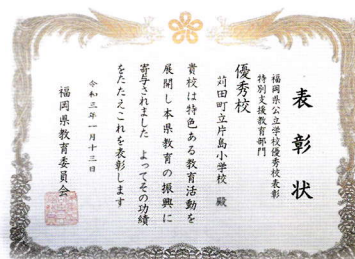 表彰状
福岡県公立学校優秀校表彰
特別支援教育部門
優秀校
苅田町立片島小学校　殿
貴校は特色ある教育活動を
展開し本県教育の振興に
寄与されました　よってその功績
をたたえこれを表彰します
令和三年一月十三日
福岡県教育委員会